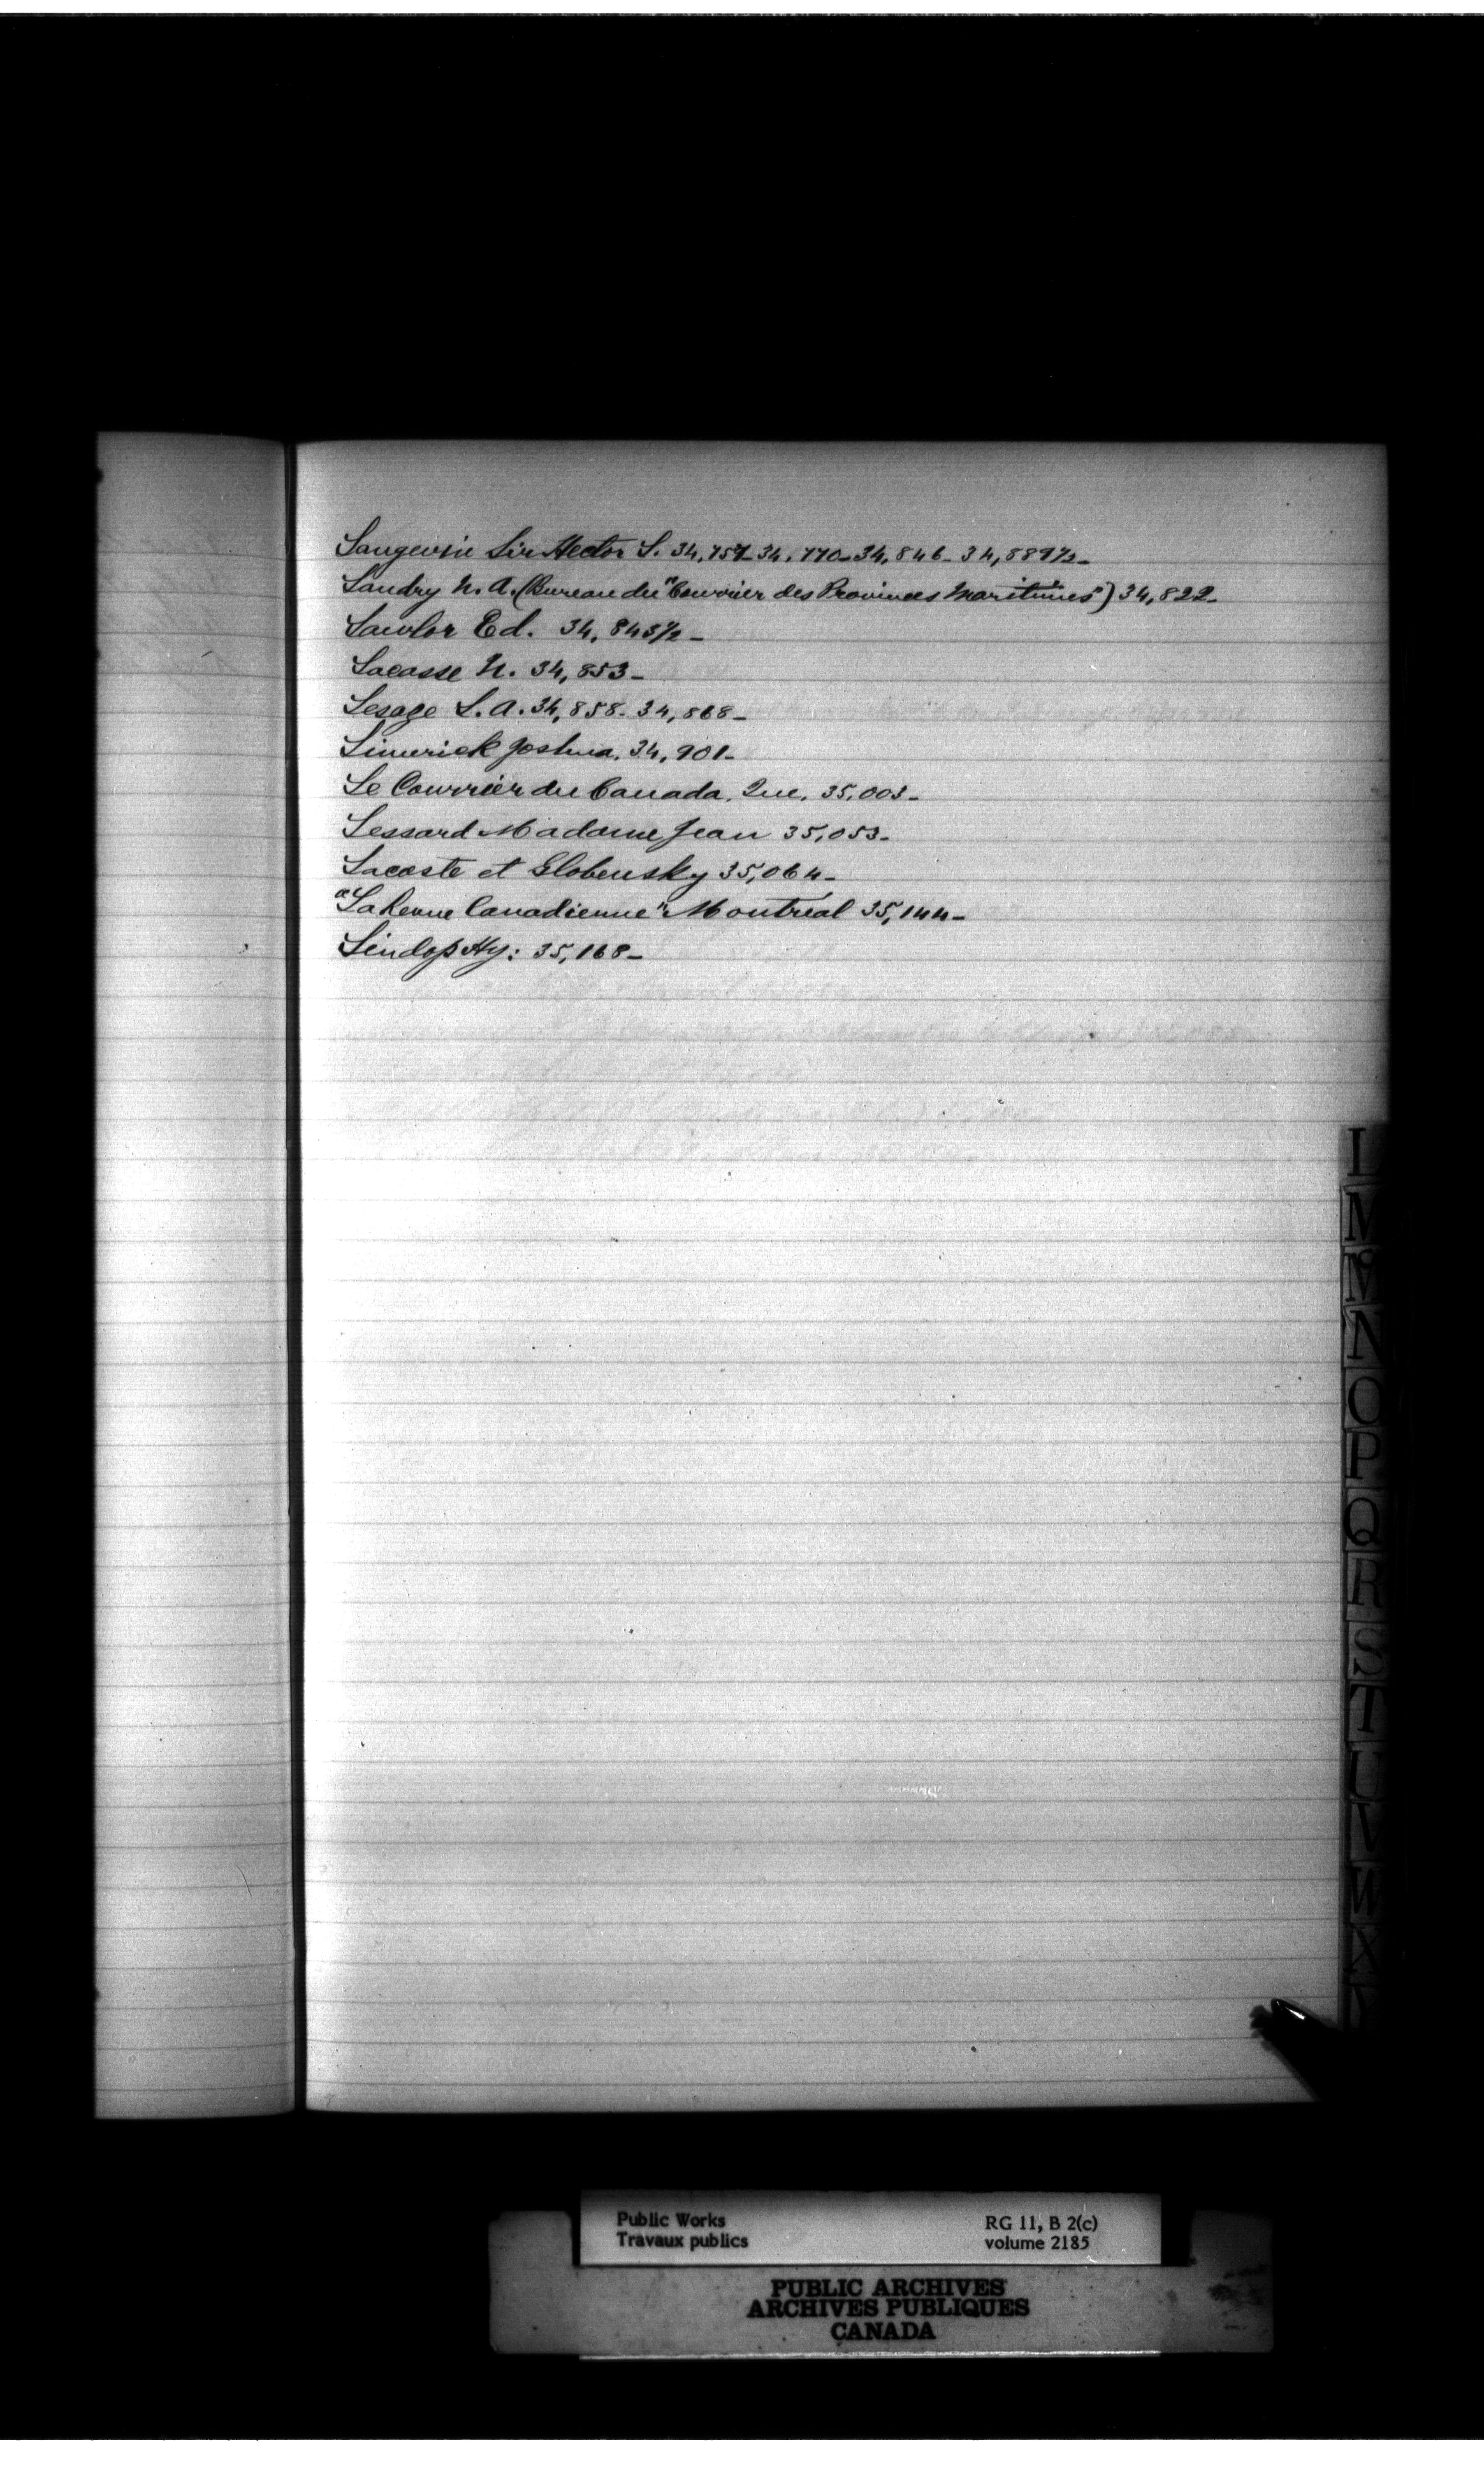 Langevin Sir Hector L. 34,757-34,770-34,846-34,889½-
Landry N. A. (Bureau du "Courrier des Provinces Maritimes") 34,822-
Lawlor Ed. 34,843½-
Lacasse N. 34,853-
Lesage L. A. 34,858-34,868-
Limerick Joshua, 34,901-
Le Courrier du Canada, Que, 35,003-
Lessard Madame Jean 35,053-
Lacoste et Globensky 35,064-
"La Revue Canadienne" Montreal 35,144-
Lindop Hy: 35,168-
L
M
Mc
N
O
P
Q
R
S
T
U
V
W
X
Y
Public Works RG 11, B 2(c)
Travaux publics volume 2185
PUBLIC ARCHIVES
ARCHIVES PUBLIQUES
CANADA